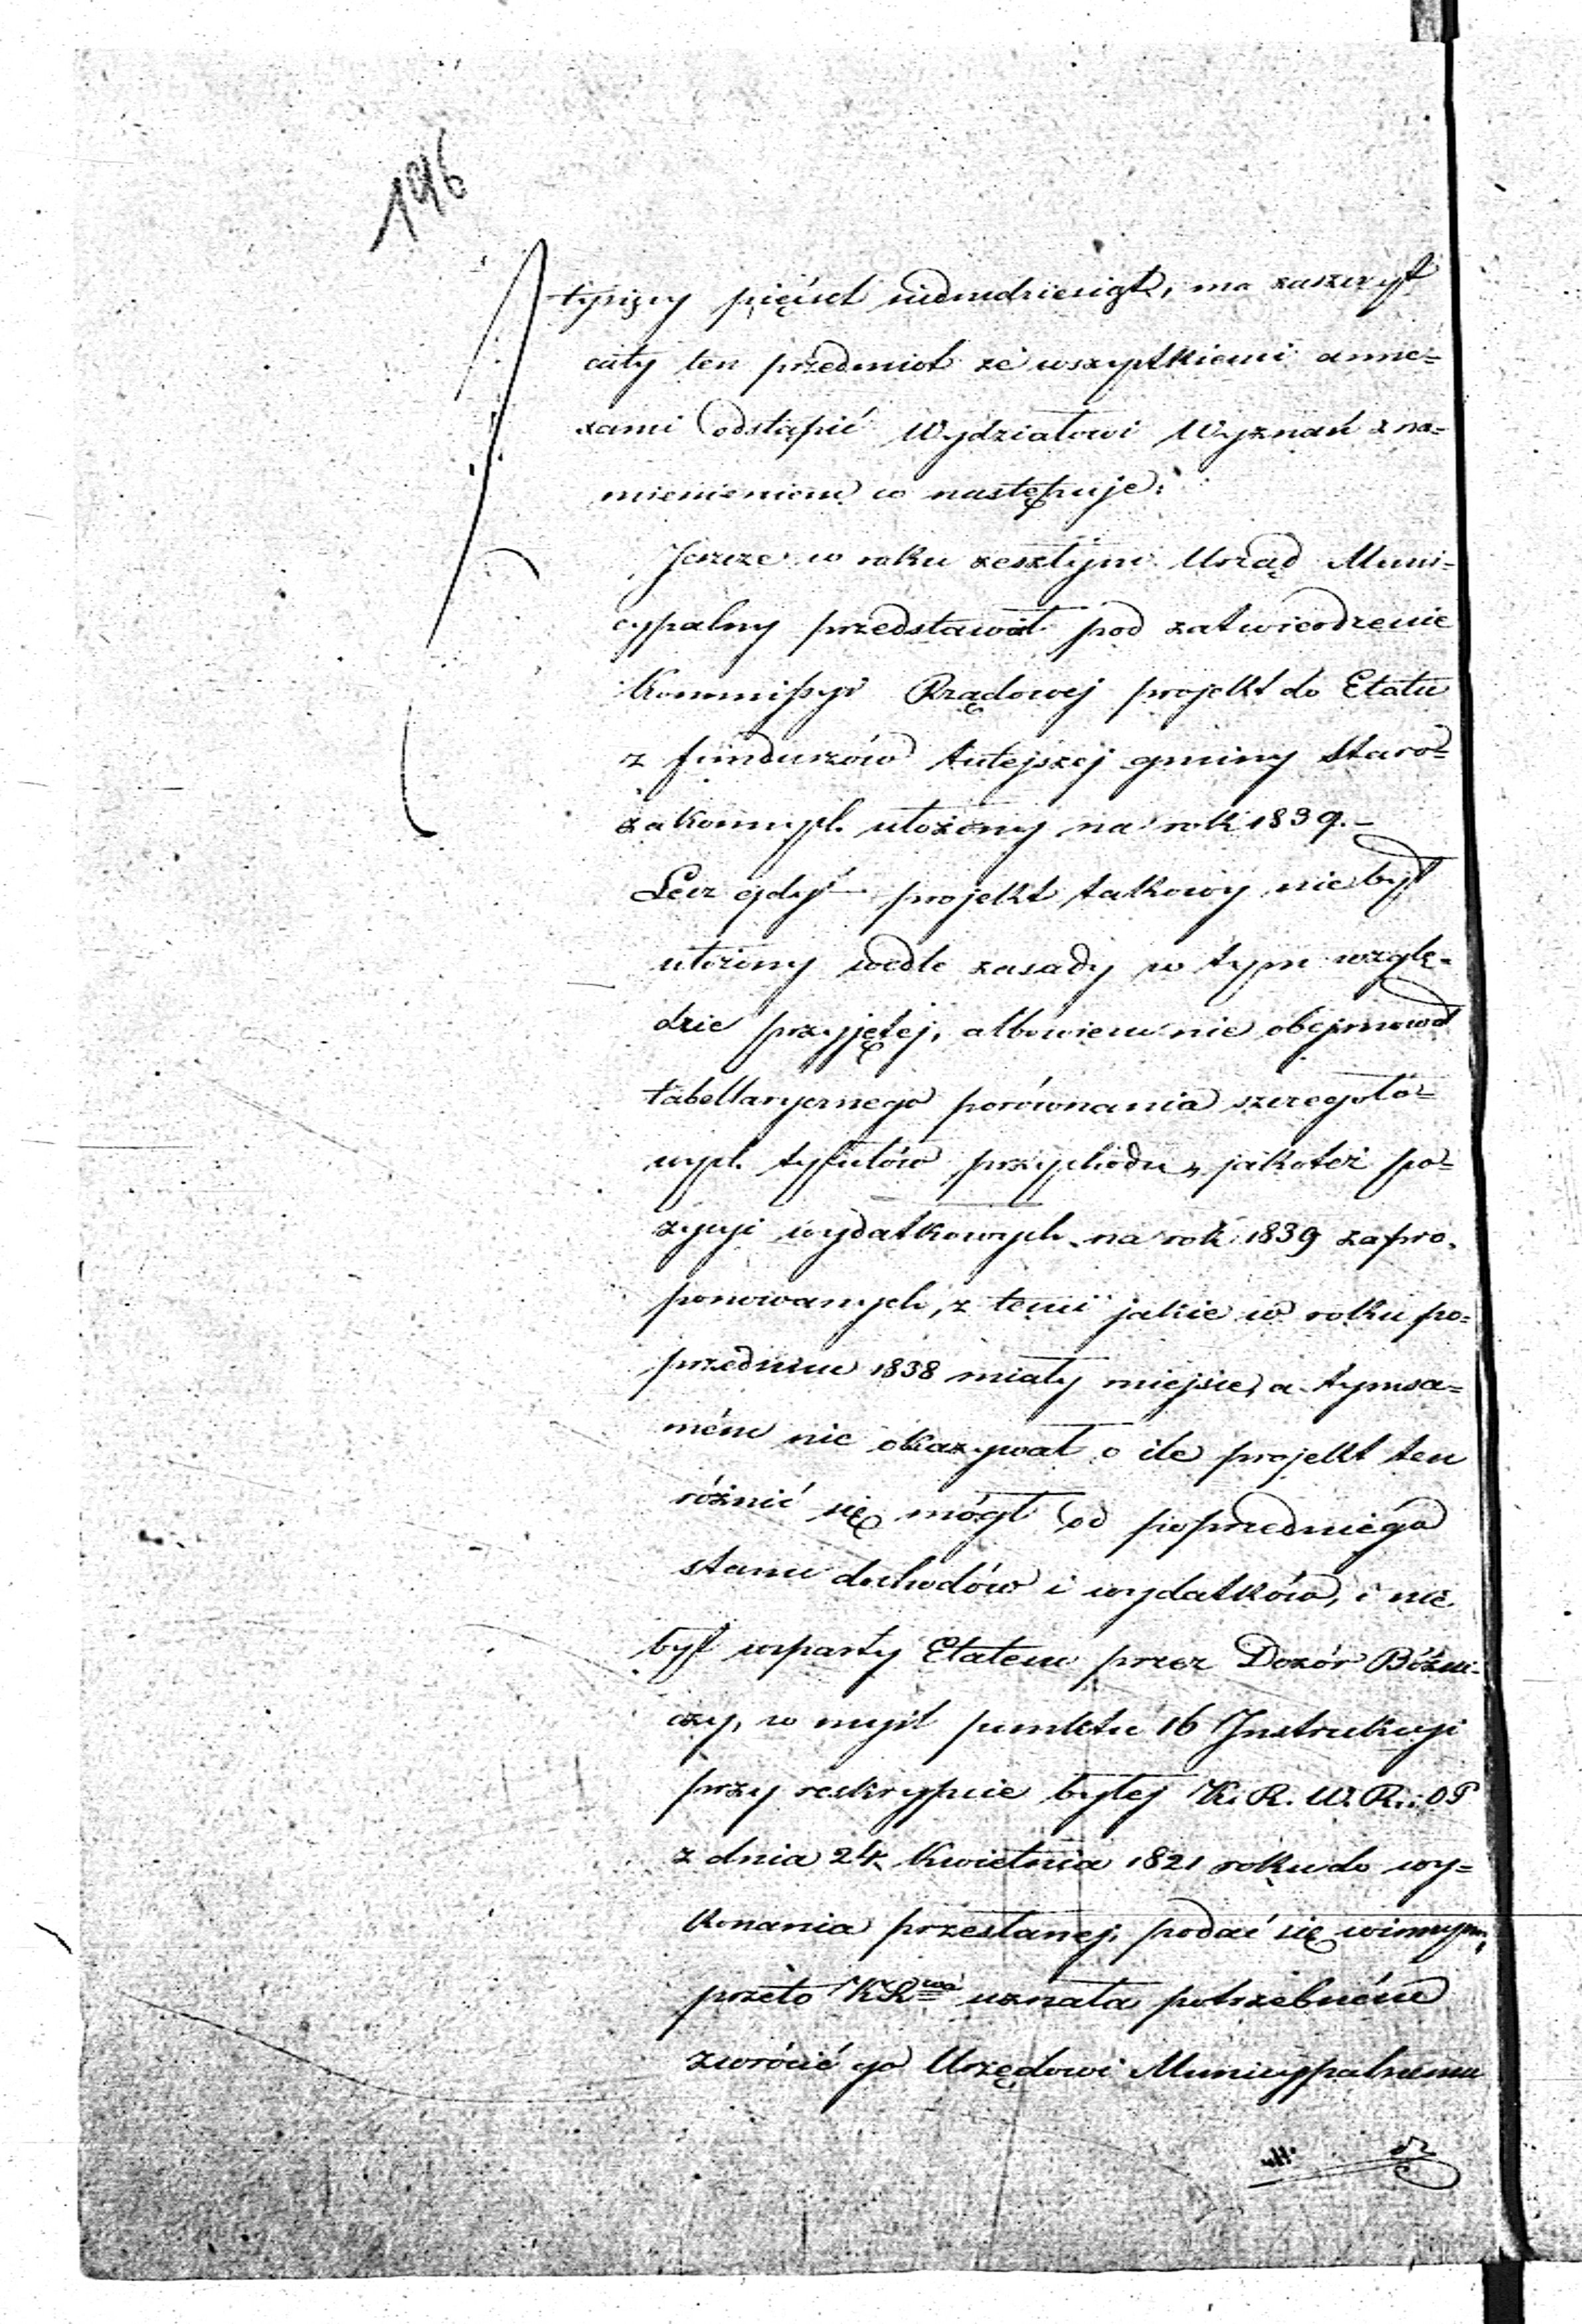 196
tysięcy pięćset siedmdziesiąt, ma zaszczyt
cały ten przedmiot ze wszystkiemi anne=
xami odstąpić Wydziałowi Wyznań z na=
mienieniem co następuje:
Jeszcze w roku zeszłym Urząd Muni=
cypalny przedstawił pod zatwierdzenie
Kommissyi Rządowej projekt do Etatu
z funduszów tutejszej gminy Staro=
zakonnych ułożony na rok 1839.–
Lecz gdyż projekt takowy nie był
ułożony wedle zasady w tym wzglę=
dzie przyjętej, albowiem nie obejmował
tabellarycznego porównania szczegóło=
wych tytułów przychodu, jakoteż po=
zycyi wydatkowych na rok 1839 zapro=
ponowanych, z temi jakie w roku po=
przednim 1838 miały miejsce, a tymsa=
mém nie okazywał o ile projekt ten
różnić się mógł od poprzedniego
stanu dochodów i wydatków, i nie
był wsparty Etatem przez Dozór Bóżni=
czy, w myśl punktu 16 Instrukcyi
przy reskrypcie byłej K. R. W. R. i OP
z dnia 24 Kwietnia 1821 roku do wy=
konania przesłanej, podać się winnym,
przeto KRwa uznała potrzebném
zwrócić go Urzędowi Municypalnemu